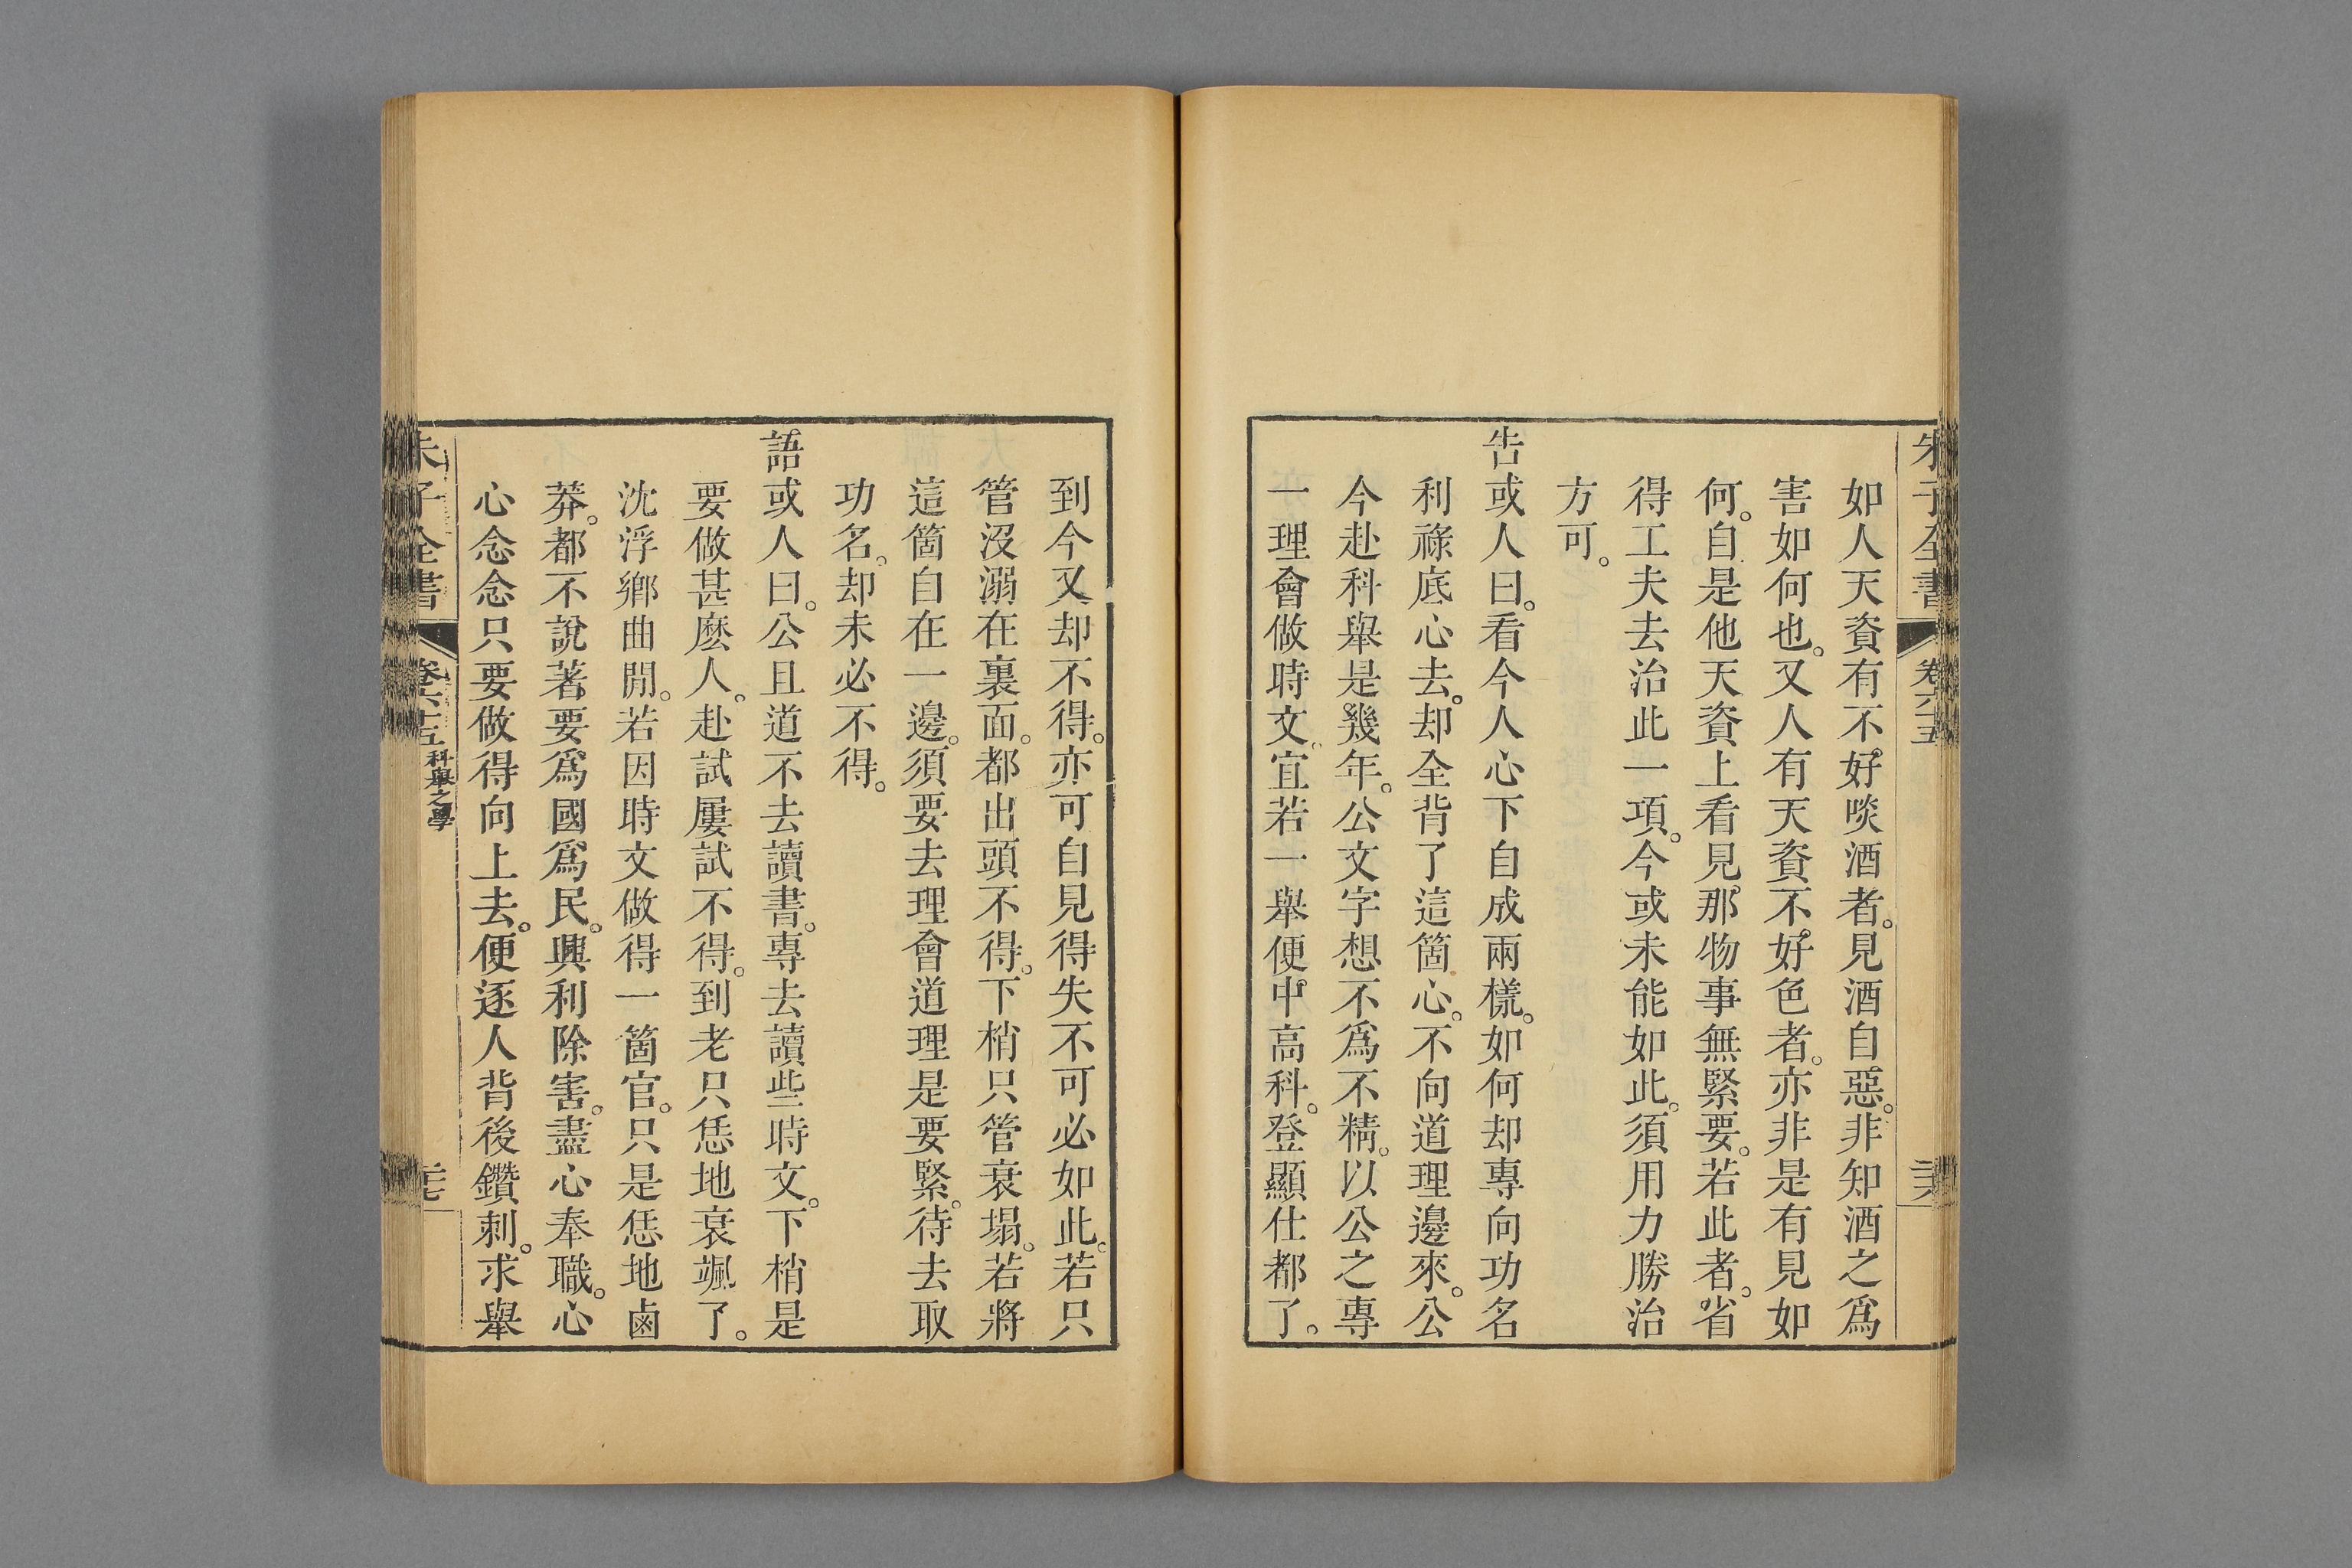 朱子全書 卷六十五
如人天資有不好啖酒者。見酒自惡。非知酒之爲
害如何也。又人有天資不好色者。亦非是有見如
何。自是他天資上看見那物事無緊要。若此者。省
得工夫去治此一項。今或未能如此。須用力勝治
方可。
告或人曰。看今人心下自成兩樣。如何却專向功名
利祿底心去。却全背了這箇心。不向道理邊來。公
今赴科舉是幾年。公文字想不爲不精。以公之專
一理會做時文。宜若一舉便中高科。登顯仕都了。
到今又却不得。亦可自見得失不可必如此。若只
管沒溺在裏面。都出頭不得。下梢只管衰塌。若將
這箇自在一邊。須要去理會道理是要緊。待去取
功名。却未必不得。
語或人曰。公且道不去讀書。專去讀些時文。下梢是
要做甚麼人。赴試屢試不得。到老只恁地衰颯了。
沈浮鄉曲閒。若因時文做得一箇官。只是恁地鹵
莽。都不說著要爲國爲民。興利除害。盡心奉職。心
心念念只要做得向上去。便逐人背後鑽刺。求舉
朱子全書 卷六十五 科舉之學